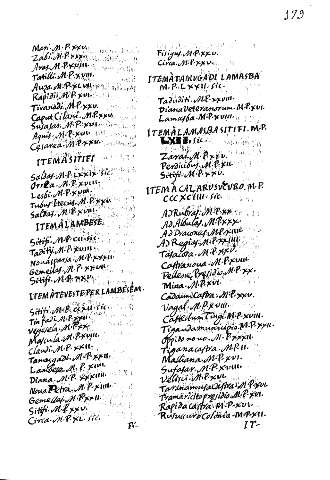 179
Mari. M.P.XXV.
Zabi. M.P.XXX.
Aras. M.P.XVIII.
Tatilti. M.P.XVIII.
Auza. M.P.XLVII.
Rapidii. M.P.XVI.
Tirandi. M.P.XXV.
Caput Cilani. M.P.XXV.
Sufasar. M.P.XVI.
Aquis. M.P.XVI.
Cesarea. M.P.XXV.
ITEM A SITIFI
Saldas. M.P.LXXIX. sic.
Orrea. M.P.XVIII.
Lesbi. M.P.XVIII.
Tubusuptus. M.P.XXV.
Saldas. M.P.XVIII.
ITEM A LAMBESE.
Sitifi. M.P.CII. sic.
Taditi. M.P.XVIII.
Nova Sparsa. M.P.XXXII.
Gemellas. M.P.XXVII.
Sitifi. M.P.XXV.
ITEM A TEVESTE PER LAMBESEM.
Sitifi. M.P.CCXII. sic.
Tinfadi. M.P.XXII.
Vegesela. M.P.XX.
Mascula. M.P.XVIII.
Claudi. M.P.XXII.
Tamugadi. M.P.XXII.
Lambese. M.P.XIIII.
Diana. M.P.XXXIII.
Nova Petra. M.P.XIIII.
Gemellas. M.P.XXII.
Sitifi. M.P.XXV.
Cirta. M.P.XL. sic.
Fisgus. M.P.XXV.
Cirta. M.P.XXV.
ITEM A TAMUGADI LAMASBA
M.P.LXXII. sic.
Tadiditi. M.P.XXVIII.
Diana Veteranorum. M.P.XVI.
Lamasba. M.P.XVIII.
ITEM A LAMASBA SITIFI. M.P.
LXII. sic.
Zarai. M.P.XXV.
Perdicibus. M.P.XII.
Sitifi. M.P.XXV.
ITEM A CALA RUSUCURO. M.P.
Ad Rubras. M.P.XX.
Ad Albulas. M.P.XXX.
Ad Dracones. M.P.XIIII.
Ad Regias. M.P.XXIIII.
Tasacora. M.P.XXV.
Castranova. M.P.XVIII.
Mina. M.P.XVI.
Gadaum Castra. M.P.XXV.
Vagal. M.P.XVIII.
Castellum Tingit. M.P.XVIII.
Tigauda municipio. M.P.XXII.
Oppido novo. M.P.XXXII.
Tigava castra. M.P.II.
Malliana. M.P.XVI.
Sufasar. M.P.XVIIII.
Velisci. M.P.XVI.
Tanaramusa Castra. M.P.XVI.
Tamaricetto presidio. M.P.XVI.
Rapida Castra. M.P.XVI.
Rusuccuro Colonia. M.P.XII.
IT-